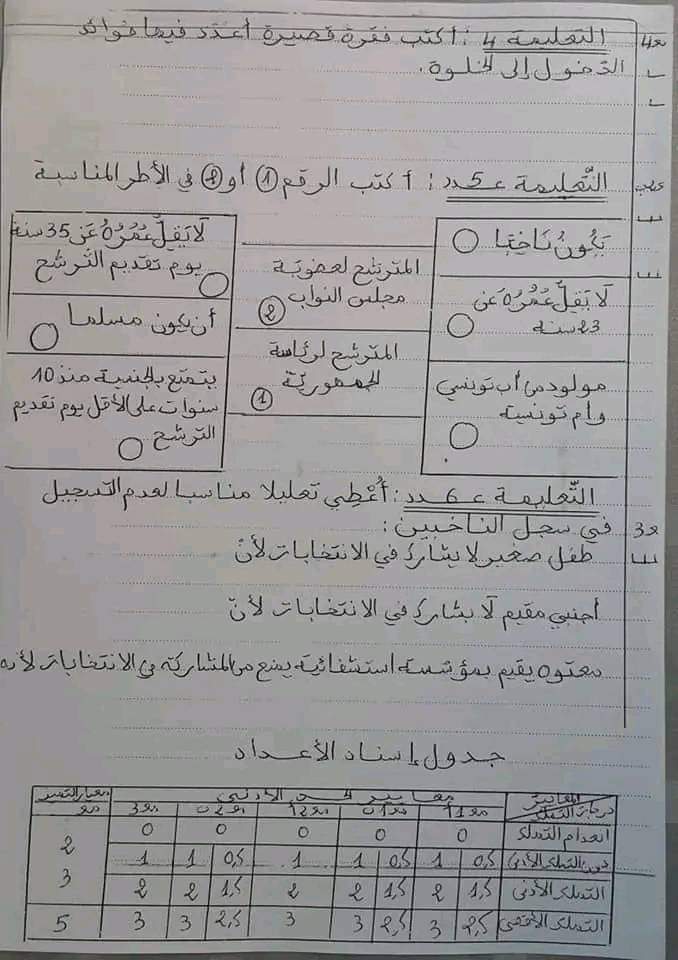 مع4 التعليمة 4 : أكتب فقرة قصيرة أعدّد فيها فوائد
الدّخول إلى الخلوة.
التّعليمة عـ5ـدد : أكتب الرقم 1 أو 2 في الأطر المناسبة
يكون ناخبا
لا يقلّ عمُرُهُ عَن
23 سنة
مولود من أب تونسي
وأم تونسية
المترشح لعضوية
مجلس النواب
2
المترشح لرئاسة
الجمهوريّة
1
لا يَقِلّ عُمُرُهُ عَن 35 سنة
يوم تقديم التّرشح
أن يكون مسلما
يتمتع بالجنسية منذ 10
سنوات على الأقل يوم تقديم
الترشح
التّعليمة عـ6ـدد : أُعْطِي تعليلا مناسبا لعدم التسجيل
مع3 في سجل الناخبين :
طفل صغير لا يشارك في الانتخابات لأنّ
أجنبي مقيم لا يشارك في الانتخابات لأنّ
معتوه يقيم بمؤسسة استشفائية يمنع من المشاركة في الانتخابات لأنه
جدول إسناد الأعداد
المعايير معايير الحد الأدنى معيار التميز
درجة التملك مع11 مع01 مع12 مع02 مع3 مع4
انعدام التملك 0 0 0 0 0
دون التملك الأدنى 0,5 1 0,5 1 1 0,5 1 1 2
التملك الأدنى 1,5 2 1,5 2 2 1,5 2 2 3
التملك الأقصى 2,5 3 2,5 3 3 2,5 3 3 5